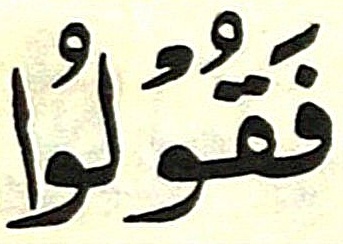 فَقُوْلُوا